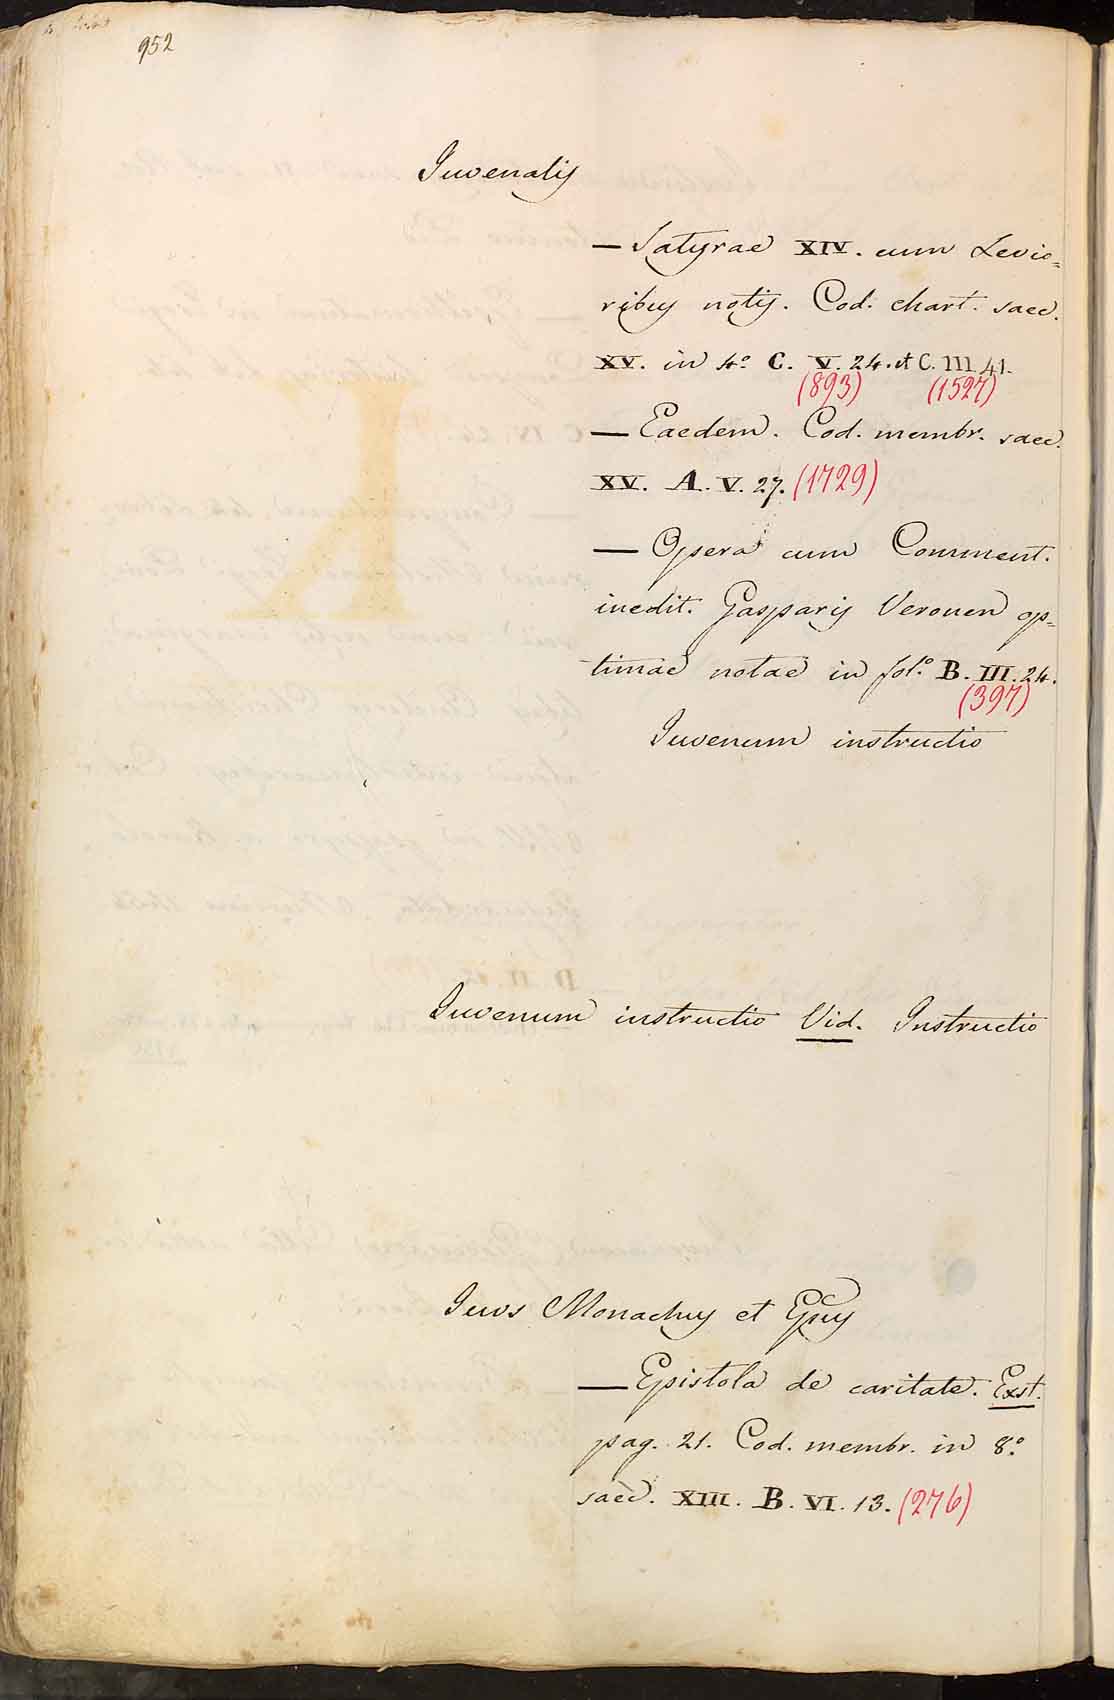 952
Iuvenalis
— Satyrae XIV. cum Levio=
ribus notis. Cod. chart. saec.
XV. in 4º C. V. 24. et C. III 41.
(893) (1527)
— Eaedem. Cod. membr. saec.
XV. A. V. 27. (1729)
— Opera cum Comment.
inedit. Gasparis Veronen op=
timae notae in folº B. III. 24.
(397)
Iuvenum instructio
Iuvenum instructio Vid. Instructio
Iuvs Monachus et
— Epistola de caritate. Exst.
pag. 21. Cod. membr. in 8º
saec. XIII. B. VI. 13. (276)